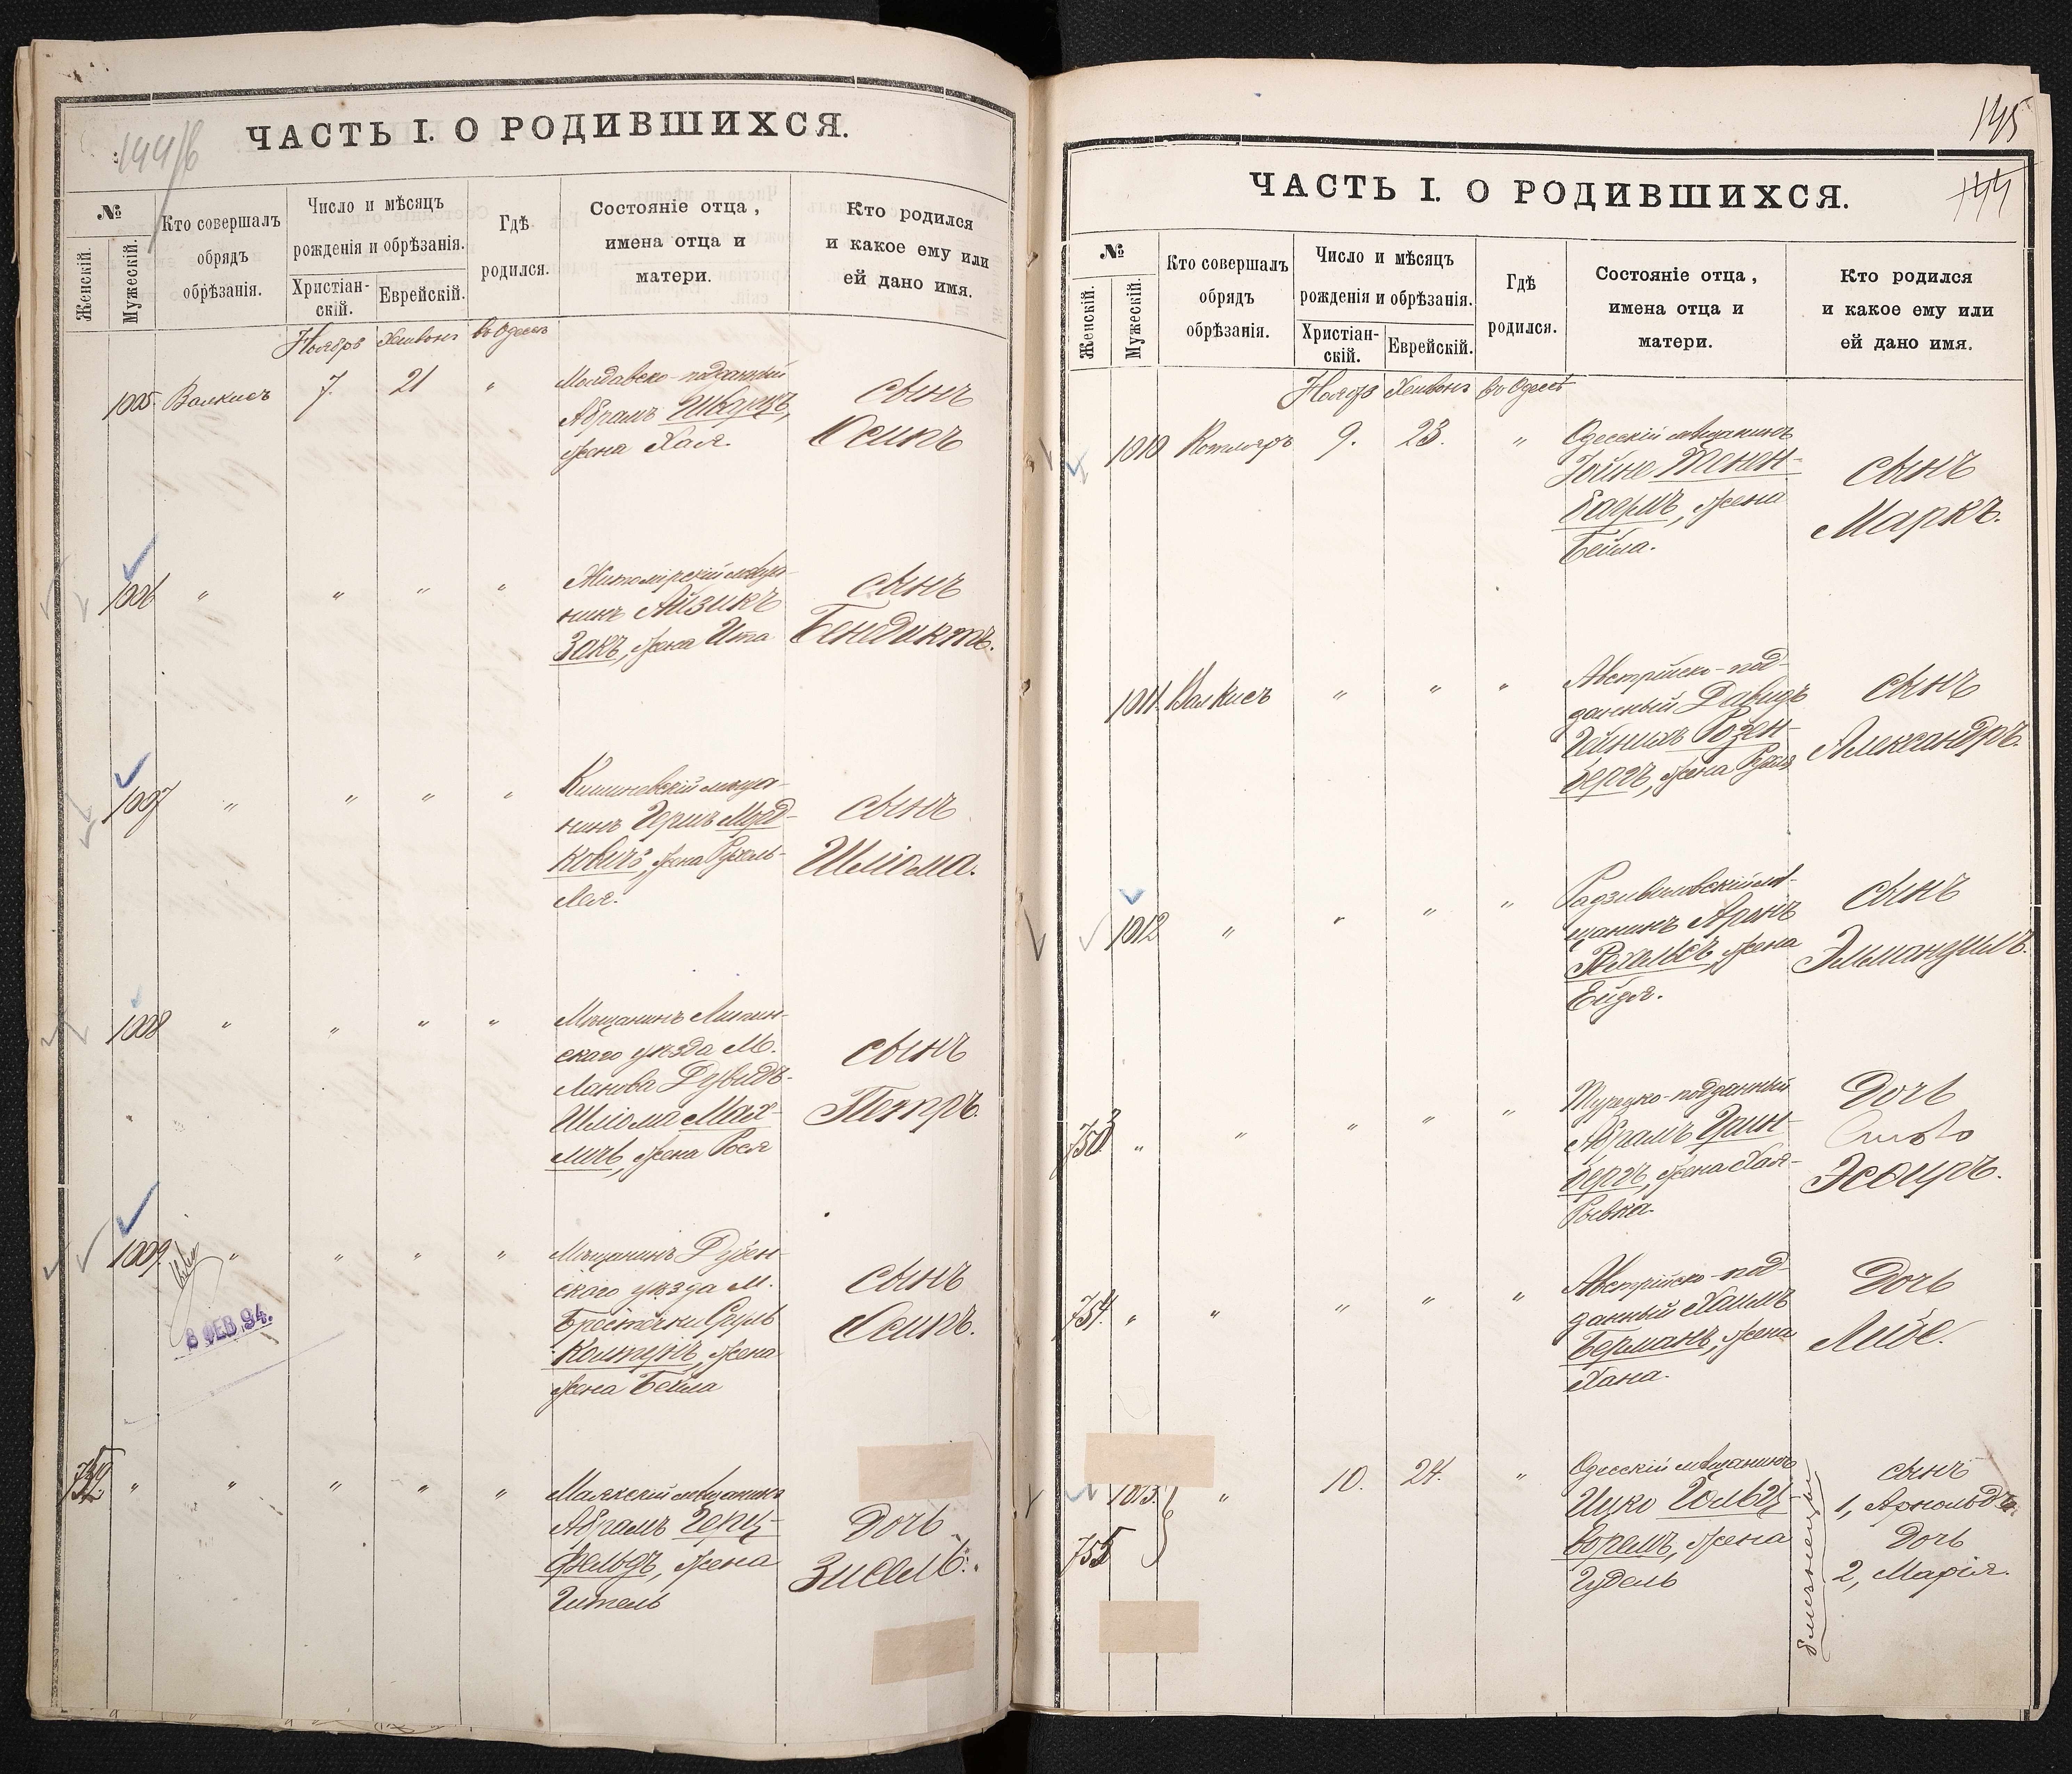 144/б
ЧАСТЬ I. О РОДИВШИХСЯ.
№
Женскій.
Мужескій.
Кто совершалъ
обрядъ
обрѣзанія.
Число и мѣсяцъ
рожденія и обрѣзанія.
Христіан-
скій.
Еврейскій.
Гдѣ
родился.
Состояніе отца,
имена отца и
матери.
Кто родился
и какое ему или
ей дано имя.
Ноябрь Хешвонъ въ Одессѣ
1005. Валкисъ 7. 21 "
Молдавско-подданный
Абрамъ Шварцъ,
жена Хая.
сынъ
Осипъ
1006 " " " "
Житомірскій мѣща-
нинъ Айзикъ
Закъ, жена Ита
сынъ
Бендиктъ.
1007 " " " "
Кишиневскій мѣща-
нинъ Гершъ Морд-
ковичъ, жена Рухель-
Лая.
сынъ
Шліома.
1008 " " " "
Мѣщанинъ Липин-
скаго уѣзда М.
Ланова Дувидъ-
Шліома Мал-
личъ, жена Рося
сынъ
Петръ.
1009. " " " "
8 ФЕВ. 94.
Мѣщанинъ Дубен-
скаго уѣзда М.
Сруль
Колтунъ, жена
жена Бейла
сынъ
Осипъ.
752. " " " " "
Маякскій мѣщанинъ
Абрамъ Герц-
фельдъ, жена
Гитель
Дочь
Зисель.
145
144
ЧАСТЬ I. О РОДИВШИХСЯ.
№
Женскій.
Мужескій.
Кто совершалъ
обрядъ
обрѣзанія.
Число и мѣсяцъ
рожденія и обрѣзанія.
Христіан-
скій.
Еврейскій.
Гдѣ
родился.
Состояніе отца,
имена отца и
матери.
Кто родился
и какое ему или
ей дано имя.
Ноябрь Хешвонъ въ Одессѣ
1010 Котляръ 9. 23. "
Одесскій мѣщанинъ
Іойно Тенен-
баумъ, жена
Бейла.
сынъ
Маркъ.
1011. Валкисъ " " "
Австрійско-под-
данный Давидъ
Гейнихъ Розен-
бергъ, жена Рухля
сынъ
Александръ.
1012 " " " "
Радзивиловскій мѣ-
щанинъ Аронъ
жена
Ейдя.
сынъ
Эммануилъ.
753 " " " " "
Турецко-подданный
Абрамъ Грин-
бергъ, жена Хая-
Рывка.
Дочь
Эсѳирь.
754. " " " " "
Австрійско-под-
данный Хаимъ
Берманъ, жена
Хана.
Дочь
Либе.
1013. " 10. 24. "
755
Одесскій мѣщанинъ
Ицко Гольц-
воремъ, жена
Гудель
близнецы
сынъ
1, Арнольдъ.
Дочь
2, Марія.